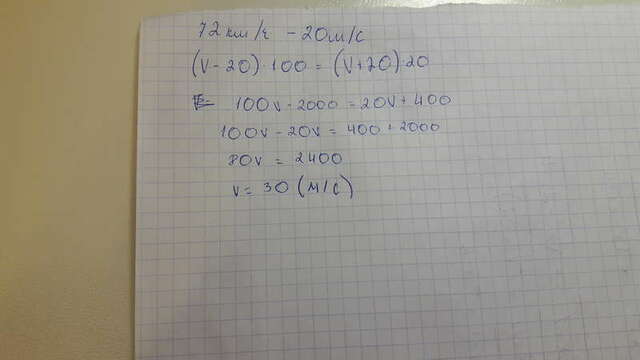 72 км/ч - 20м/с
(V-20)·100 = (V+20)·20
100V - 2000 = 20V + 400
100V - 20V = 400 + 2000
80V = 2400
V = 30 (м/с)